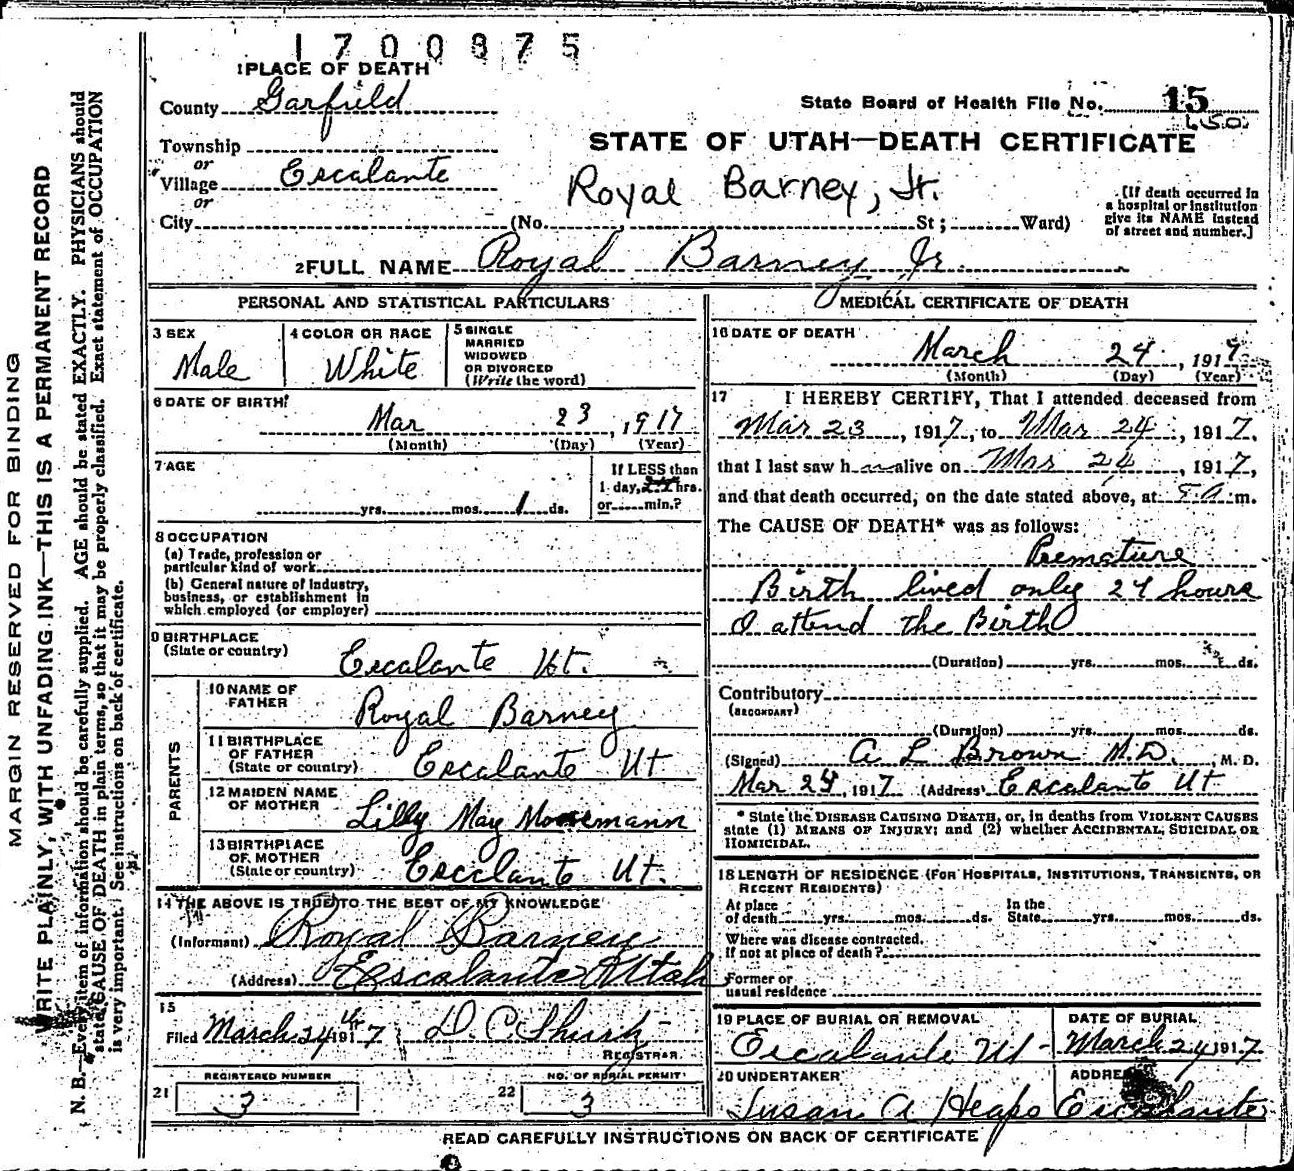 1700875
1 PLACE OF DEATH
County Garfield
State Board of Health File No. 15
150
Township
STATE OF UTAH—DEATH CERTIFICATE
or
Village Escalante
Royal Barney, Jr.
or
City (No. St; Ward)
(If death occurred in a hospital or institution give its NAME instead of street and number.]
2 FULL NAME Royal Barney Jr
PERSONAL AND STATISTICAL PARTICULARS
3 SEX Male
4 COLOR OR RACE White
5 SINGLE
MARRIED
WIDOWED
OR DIVORCED
(Write the word)
6 DATE OF BIRTH
Mar 23, 1917
(Month) (Day) (Year)
7 AGE
yrs. mos. 1 ds.
If LESS than
1 day, hrs.
or min.?
8 OCCUPATION
(a) Trade, profession or
particular kind of work
(b) General nature of industry,
business, or establishment in
which employed (or employer)
9 BIRTHPLACE
(State or country) Escalante Ut.
PARENTS
10 NAME OF
FATHER Royal Barney
11 BIRTHPLACE
OF FATHER
(State or country) Escalante Ut
12 MAIDEN NAME
OF MOTHER Lilly May Moosemann
13 BIRTHPLACE
OF MOTHER
(State or country) Escalante Ut.
14 THE ABOVE IS TRUE TO THE BEST OF MY KNOWLEDGE
(Informant) Royal Barney
(Address) Escalante Utah
15
Filed March 24 1917 D. C. Shurtz
REGISTRAR
REGISTERED NUMBER
21 3
NO. OF BURIAL PERMIT
22 3
MEDICAL CERTIFICATE OF DEATH
16 DATE OF DEATH
March 24, 1917
(Month) (Day) (Year)
17 I HEREBY CERTIFY, That I attended deceased from
Mar 23, 1917, to Mar 24, 1917,
that I last saw h alive on Mar 24, 1917,
and that death occurred, on the date stated above, at m.
The CAUSE OF DEATH* was as follows:
Premature
Birth lived only 24 hours
I attend the Birth
(Duration) yrs. mos. ds.
Contributory
(SECONDARY)
(Duration) yrs. mos. ds.
(Signed) A L Brown M.D., M. D.
Mar 24, 1917 (Address) Escalante Ut
* State the DISEASE CAUSING DEATH, or, in deaths from VIOLENT CAUSES
state (1) MEANS OF INJURY; and (2) whether ACCIDENTAL, SUICIDAL OR
HOMICIDAL.
18 LENGTH OF RESIDENCE (FOR HOSPITALS, INSTITUTIONS, TRANSIENTS, OR
RECENT RESIDENTS)
At place
of death yrs. mos. ds.
In the
State yrs. mos. ds.
Where was disease contracted,
If not at place of death?
Former or
usual residence
19 PLACE OF BURIAL OR REMOVAL
Escalante Ut
DATE OF BURIAL
March 24 1917
20 UNDERTAKER
Susan A Heaps
ADDRESS
Escalante
READ CAREFULLY INSTRUCTIONS ON BACK OF CERTIFICATE
MARGIN RESERVED FOR BINDING
WRITE PLAINLY, WITH UNFADING INK—THIS IS A PERMANENT RECORD
N. B.—Every item of information should be carefully supplied. AGE should be stated EXACTLY. PHYSICIANS should
state CAUSE OF DEATH in plain terms, so that it may be properly classified. Exact statement of OCCUPATION
is very important. See instructions on back of certificate.